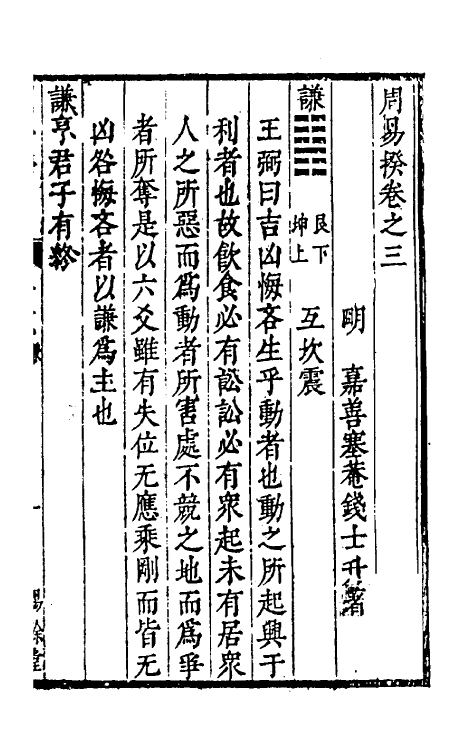 周易揆卷之三
明　嘉善塞菴錢士升著
謙䷎艮下坤上　互坎震
王弼曰吉凶悔吝生乎動者也動之所起興于
利者也故飲食必有訟訟必有衆起未有居衆
人之所惡而爲動者所害處不競之地而爲爭
者所奪是以六爻雖有失位无應乘剛而皆无
凶咎悔吝者以謙爲主也
謙亨君子有終